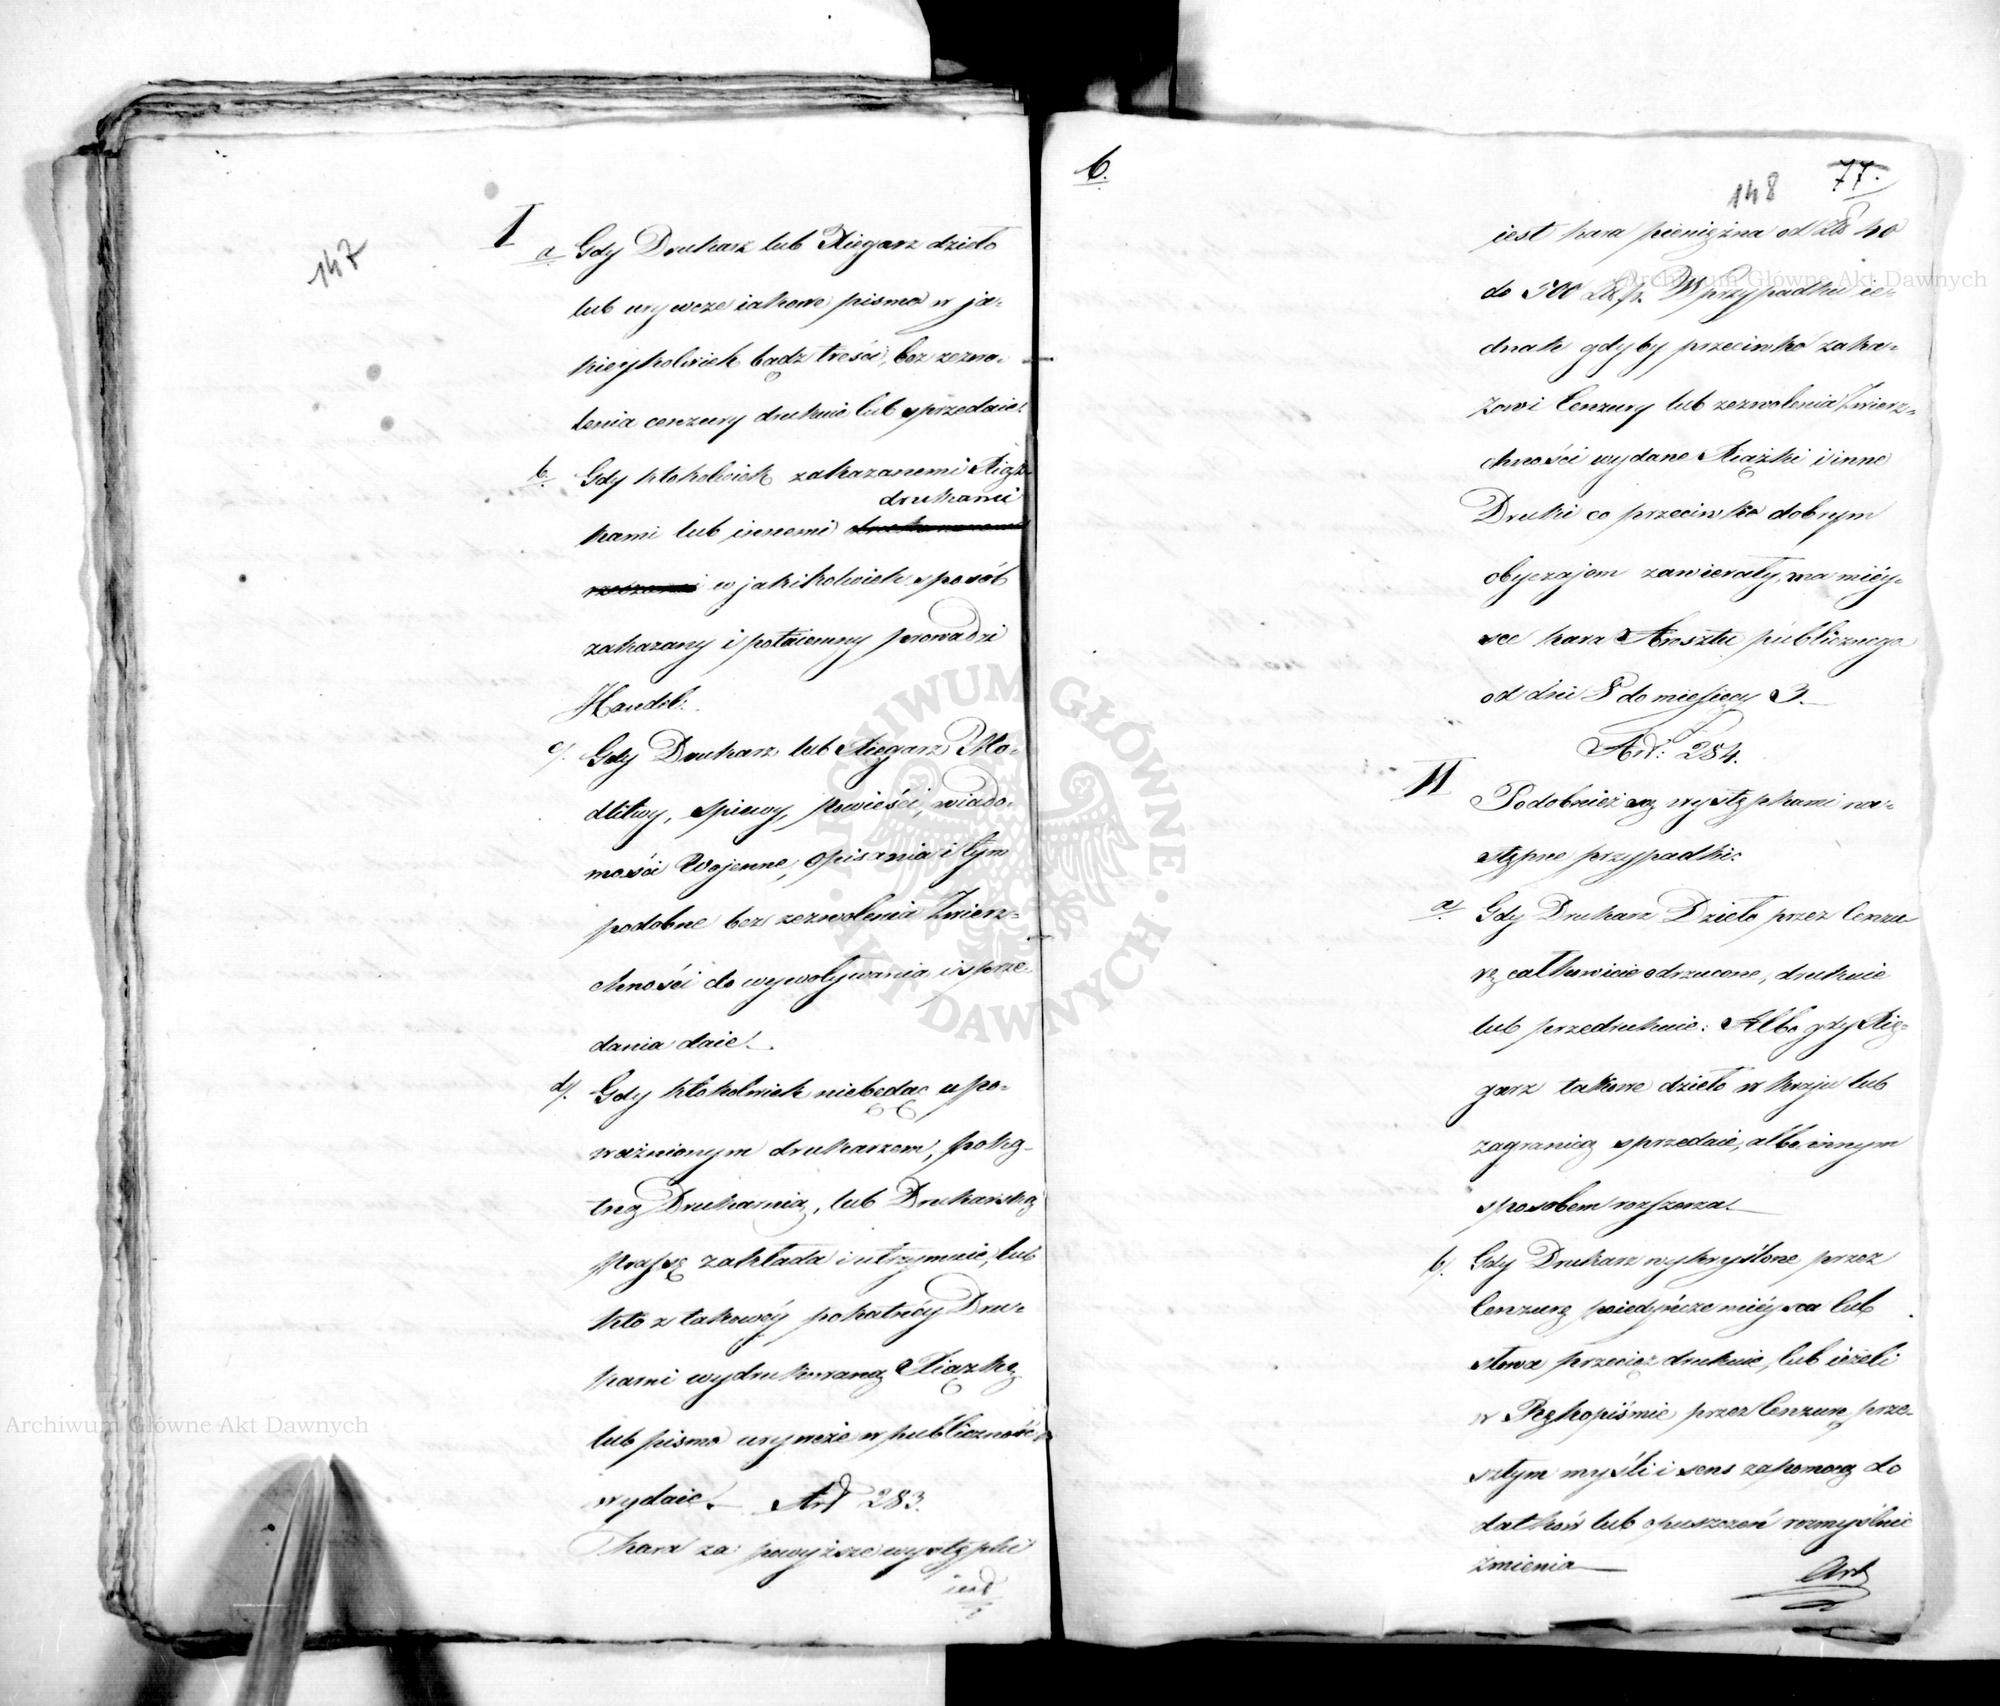 147
I
a Gdy Drukarz lub Xięgarz dzieło
lub urywcze iakowe pismo w ja-
kieykolwiek bądź treści, bez zezwo-
lenia cenzury drukuie lub sprzedaie.
b. Gdy ktokolwiek zakazanemi Xiąż-
drukami
kami lub innemi
w jakikolwiek sposób
zakazany i potaiemny prowadzi
Handel.
c/. Gdy Drukarz lub Xięgarz Mo-
dlitwy, spiewy, powieści, wiado-
mości Wojenne, opisania i tym
podobne bez zezwolenia Zwierz-
chności do wywoływania i sprze-
dania daie.
d/. Gdy ktokolwiek niebędąc upo-
ważnionym drukarzem, poką-
tną Drukarnią, lub Drukarską
Prassę zakłada i utrzymuie, lub
kto z takowéy pokatnéy Dru-
karni wydrukowaną Xiążkę
lub pismo urywcze w publiczność
wydaie. Art 283.
Kara za powyższe występki
iest
6.
148 77.
iest kara pieniężna od Złt 40
do 500 Złt. W przypadku ie-
dnak gdyby przeciwko zaka-
zowi Cenzury lub zezwolenia Zwierz-
chności wydane Xiążki i inne
Druki co przeciwko dobrym
obyczajom zawierały, ma miéy-
sce kara Aresztu publicznego
od dni 8 do miesięcy 3.
Art: 284.
II
Podobnież są występkami na-
stępne przypadki:
a/ Gdy Drukarz Dzieło przez Cenzu-
rę całkowicie odrzucone, drukuie
lub przedrukuie: Albo gdy Xię-
garz takowe dzieło w kraju lub
zagranicą sprzedaie, albo innym
sposobem rozszerza.
b/. Gdy Drukarz wykryślone przez
Cenzurę poiedyńcze miéysca lub
słowa przecięż drukuie, lub ieżeli
w Rękopiśmie przez Cenzurę prze-
szłym myśli i sens zapomocą do
datków lub opuszczeń rozmyślnie
zmienia
Art
Archiwum Główne Akt Dawnych
Archiwum Główne Akt Dawnych
ARCHIWUM GŁÓWNE · AKT DAWNYCH ·